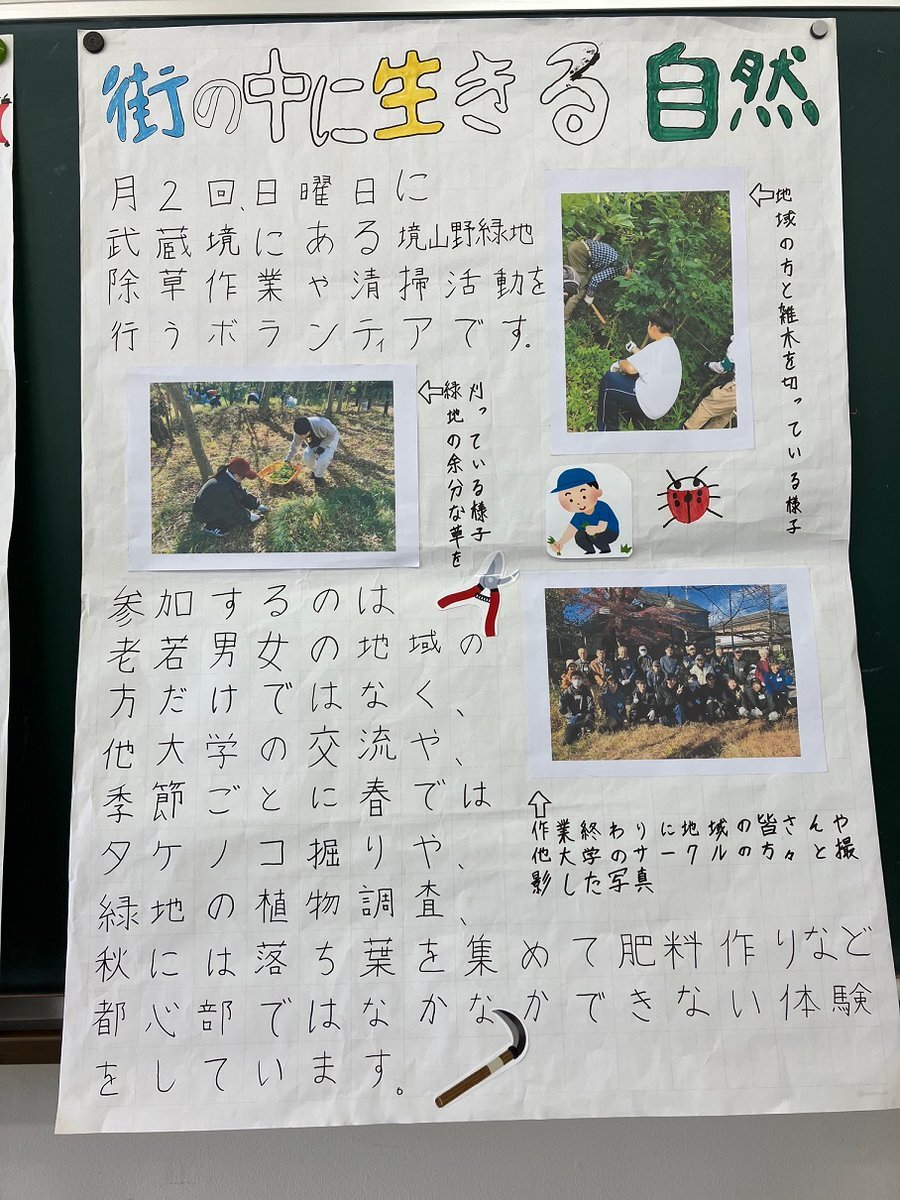 街の中に生きる 自然
月2回、日曜日に
武蔵境にある境山野緑地
除草作業や清掃活動を
行うボランティアです。
⇦地域の方と雑木を切っている様子
刈っている様子
⇦緑地の余分な草を
参加するのは
老若男女の地域の
方だけではなく、
他大学の交流や、
季節ごとに春では
タケノコ掘りや、
緑地の植物調査、
秋には落ち葉を集めて肥料作りなど
都心部ではなかなかできない体験
をしています。
⇧
作業終わりに地域の皆さんや
他大学のサークルの方々と撮
影した写真